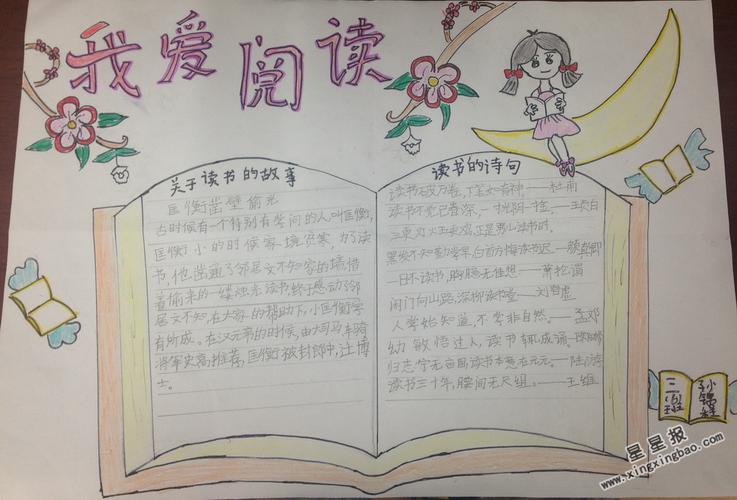 我爱阅读
关于读书的故事
匡衡凿壁偷光
古时候有一个特别有学问的人,叫匡衡,
匡衡小的时候家境贫寒,为了读
书,他凿通了邻居文不知家的墙借
着偷来的一缕烛光读书,终于感动了邻
居文不知,在大家的帮助下,小匡衡学
有所成。在汉元帝的时候,由大司马车骑
将军史高推荐,匡衡被封郎中,迁博
士。
读书的诗句
读书破万卷,下笔如有神。——杜甫
读书不觉已春深,一寸光阴一寸金。——王贞白
三更灯火五更鸡,正是男儿读书时。
黑发不知勤学早,白首方悔读书迟。——颜真卿
一日不读书,胸臆无佳想。——萧抡谓
闲门向山路,深柳读书堂。——刘昚虚
人学始知道,不学非自然。——孟郊
幼敏悟过人,读书辄成诵。
归志宁无五亩园,读书本意在元元。——陆游
读书三十年,腰间无尺组。——王维
三班
孙
星星报
www.xingxingbao.com